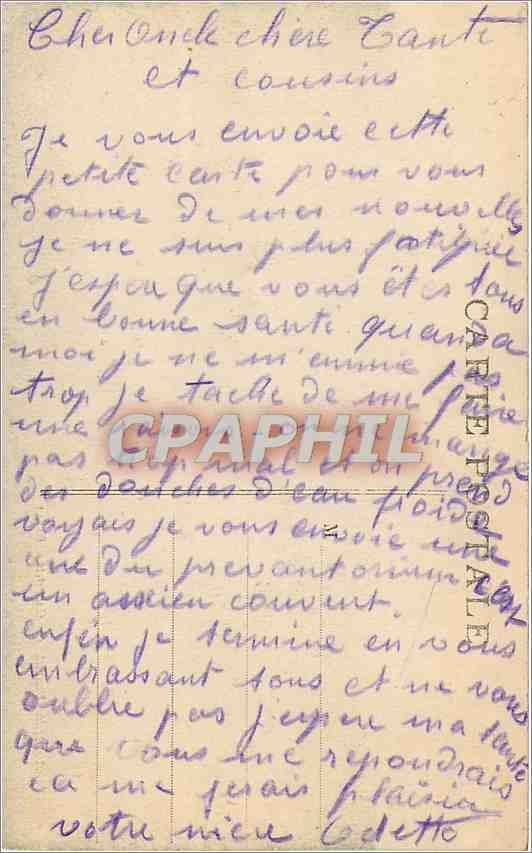 Cher Oncle chère Tante
et cousins
Je vous envoie cette
petite carte pour vous
donner de mes nouvelles
je ne suis plus fatiguée
J'espère que vous êtes tous
en bonne santé quand a
moi je ne m'ennuie pas
trop je tache de me faire
une on mange
pas trop mal et on prend
des douches d'eau froide
voyais je vous envoie une
vue du prevantorium c'est
un anxien couvent
enfin je termine en vous
embrassant tous et ne vous
oublie pas j'espere ma tante
que vous me repondrais
ca me ferais plaisir
votre niece Odette
CARTE POSTALE
M
CPAPHIL